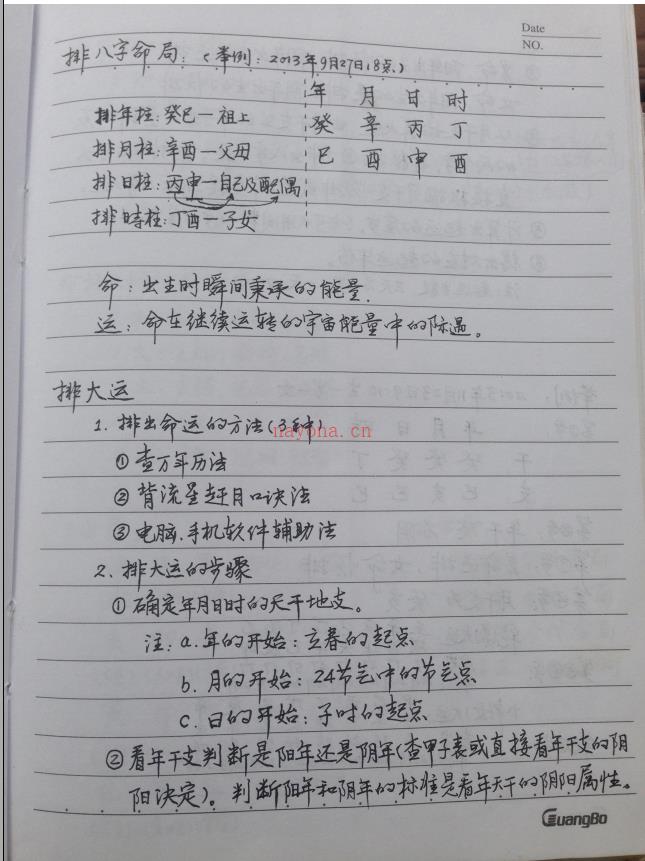 Date
NO.
排八字命局：（举例：2013年9月27日18点）
年 月 日 时
排年柱：癸巳—祖上 癸 辛 丙 丁
排月柱：辛酉—父母 巳 酉 申 酉
排日柱：丙申—自己及配偶
排時柱：丁酉—子女
命：出生时瞬间秉承的能量.
运：命在继续运转的宇宙能量中的际遇。
排大运
1. 排出命运的方法（3种）
nayona.cn
①查万年历法
②背流星赶月口诀法
③电脑、手机软件辅助法
2. 排大运的步骤
①确定年月日时的天干地支。
注：a.年的开始：立春的起点
b.月的开始：24节气中的节气点
c.日的开始：子时的起点
②看年干支判断是阳年还是阴年（查甲子表或直接看年干支的阴
阳决定）。判断阳年和阴年的标准是看年天干的阴阳属性。
GuangBo